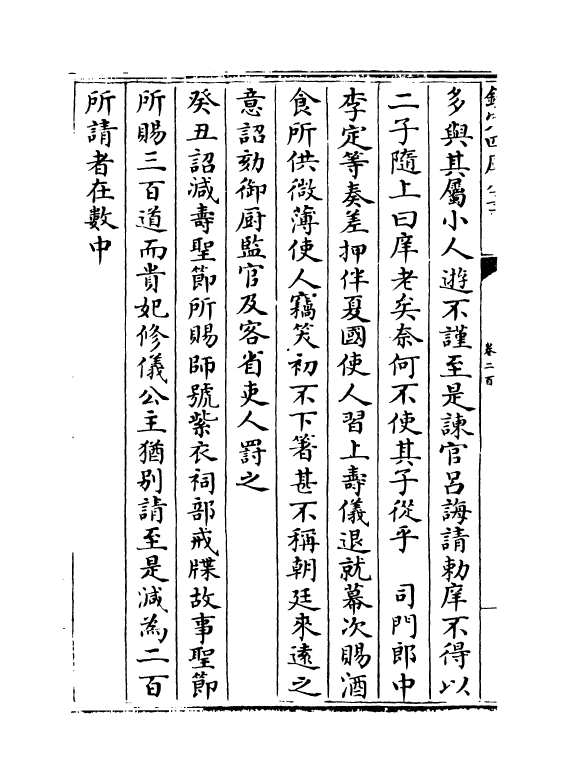 多與其屬小人遊不謹至是諫官呂誨請勅庠不得以
二子隨上曰庠老矣奈何不使其子從乎　司門郎中
李定等奏差押伴夏國使人習上壽儀退就幕次賜酒
食所供微薄使人竊笑初不下箸甚不稱朝廷來遠之
意詔劾御厨監官及客省吏人罰之
癸丑詔減壽聖節所賜師號紫衣祠部戒牒故事聖節
所賜三百道而貴妃修儀公主猶别請至是減為二百
所請者在數中
卷二百